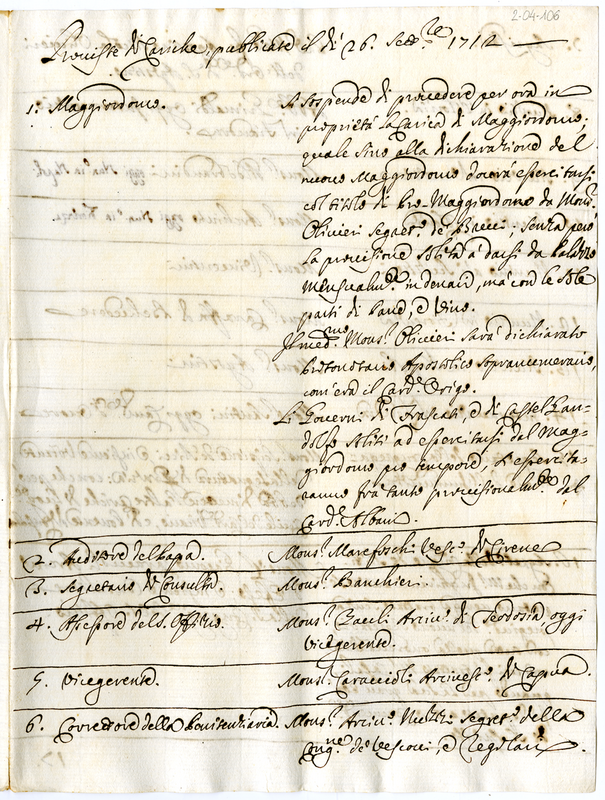 2-04-106
Proviste di Cariche, publicate il dì 26. Sett.re 1712
1. Maggiordomo.
Si sospende di procedere per ora in
proprietà la Carica di Maggiordomo,
quale sino alla dichiarazione del
nuovo Maggiordomo dovrà esercitarsi
col titolo di Pro-Maggiordomo da Mons.r
Olivieri Segret.o de' Brevi; senza però
la provisione solita à darsi da Palazzo
mensualm.te in denaro, mà con le sole
parti di Pane, e Vino.
Il med.mo Mons.r Olivieri sarà dichiarato
Protonotario Apostolico Sopranumerario,
com'era il Card. Origo.
Li Governi di Frascati, e di Castel Gan-
dolfo soliti ad esercitarsi dal Mag-
giordomo pro tempore, si esercita-
ranno frà tanto provisionalm.te dal
Card. Albani.
2. Auditore del Papa.
Mons.r Marefoschi Vesc.o di Cirene
3. Segretario di Consulta.
Mons.r Banchieri.
4. Assessore del S. Offizio.
Mons.r Zauli Arciv.o di Teodosia, oggi
Vicegerente.
5. Vicegerente.
Mons.r Caraccioli Arcivesc.o di Capua.
6. Correttore della Penitenziaria.
Mons.r Arciv.o Segret.o della
Cong.ne de' Vescovi, e Regolari.